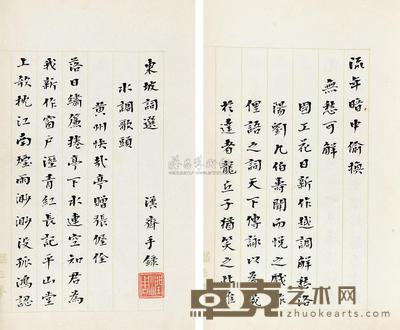 流年暗中偷換
無愁可解
國工花日新作越調解愁洛
陽劉几伯壽聞而悅之戲作
俚語之詞天下傳詠以為幾
於達者龍丘子猶笑之此雖
東坡詞選 漢齋手錄
水調歌頭
黃州快哉亭贈張偓佺
落日繡簾捲亭下水連空知君為
我新作窗戶溼青紅長記平山堂
上欹枕江南煙雨渺渺沒孤鴻認